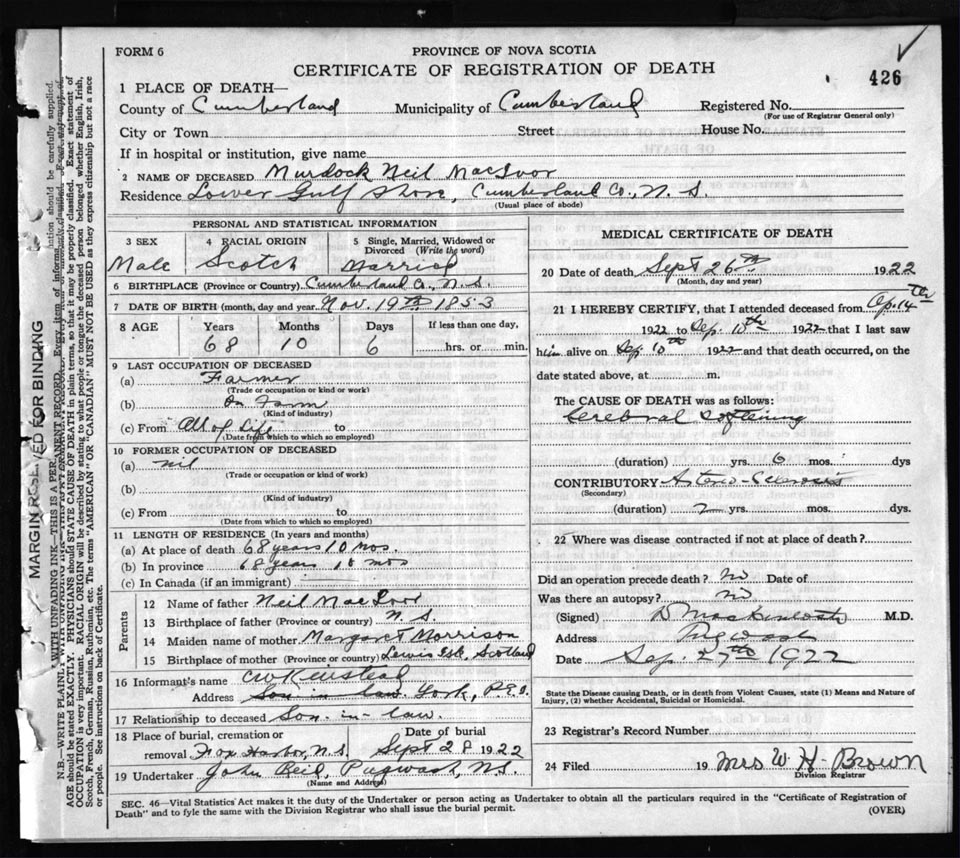 FORM 6
PROVINCE OF NOVA SCOTIA
CERTIFICATE OF REGISTRATION OF DEATH
426
1 PLACE OF DEATH—
County of Cumberland Municipality of Cumberland Registered No.
(For use of Registrar General only)
City or Town Street House No.
If in hospital or institution, give name
2 NAME OF DECEASED Murdock Neil MacIvor
Residence Lower Gulf Shore, Cumberland Co., N. S.
(Usual place of abode)
PERSONAL AND STATISTICAL INFORMATION
3 SEX 4 RACIAL ORIGIN 5 Single, Married, Widowed or Divorced (Write the word)
Male Scotch Married
6 BIRTHPLACE (Province or Country) Cumberland Co., N. S.
7 DATE OF BIRTH (month, day and year) Nov. 19th 1853
8 AGE Years Months Days If less than one day,
68 10 6 hrs. or min.
9 LAST OCCUPATION OF DECEASED
(a) Farmer
(Trade or occupation or kind or work)
(b) On Farm
(Kind of industry)
(c) From All of Life to
(Date from which to which so employed)
10 FORMER OCCUPATION OF DECEASED
(a) nil
(Trade or occupation or kind of work)
(b)
(Kind of industry)
(c) From to
(Date from which to which so employed)
11 LENGTH OF RESIDENCE (In years and months)
(a) At place of death 68 years 10 mos.
(b) In province 68 years 10 mos
(c) In Canada (if an immigrant)
Parents
12 Name of father Neil MacIvor
13 Birthplace of father (Province or country) N. S.
14 Maiden name of mother Margaret Morrison
15 Birthplace of mother (Province or country) Lewis Isle, Scotland
16 Informant's name
Address Son in law York, P.E.I.
17 Relationship to deceased Son-in-law.
18 Place of burial, cremation or Date of burial
removal Fox Harbor, N.S. Sept 28 1922
19 Undertaker John Reid, Pugwash, N.S.
(Name and Address)
MEDICAL CERTIFICATE OF DEATH
20 Date of death Sept 26th 1922
(Month, day and year)
21 I HEREBY CERTIFY, that I attended deceased from Ap. 14th
1922 to Sep. 10th 1922 that I last saw
him alive on Sep. 10th 1922 and that death occurred, on the
date stated above, at m.
The CAUSE OF DEATH was as follows:
Cerebral Softening
(duration) yrs. 6 mos. dys
CONTRIBUTORY Arterio-Sclerosis
(Secondary)
(duration) 2 yrs. mos. dys.
22 Where was disease contracted if not at place of death?
Did an operation precede death? No Date of
Was there an autopsy? No
(Signed) D Mackintosh M.D.
Address Pugwash
Date Sep. 27th 1922
State the Disease causing Death, or in death from Violent Causes, state (1) Means and Nature of
Injury, (2) whether Accidental, Suicidal or Homicidal.
23 Registrar's Record Number
24 Filed 19 Mrs W. H. Brown
Division Registrar
SEC. 46—Vital Statistics Act makes it the duty of the Undertaker or person acting as Undertaker to obtain all the particulars required in the "Certificate of Registration of
Death" and to fyle the same with the Division Registrar who shall issue the burial permit. (OVER)
MARGIN RESERVED FOR BINDING
N.B.—WRITE PLAINLY, WITH UNFADING INK—THIS IS A PERMANENT RECORD. Every item of information should be carefully supplied.
AGE should be stated EXACTLY. PHYSICIANS should STATE CAUSE OF DEATH in plain terms, so that it may be properly classified. Exact statement of
OCCUPATION is very important. RACIAL ORIGIN will be described by stating to what people or tongue the deceased person belonged whether English, Irish,
Scotch, French, German, Russian, Ruthenian, etc. The terms "AMERICAN" OR "CANADIAN" MUST NOT BE USED as they express citizenship but not a race
or people. See instructions on back of Certificate.